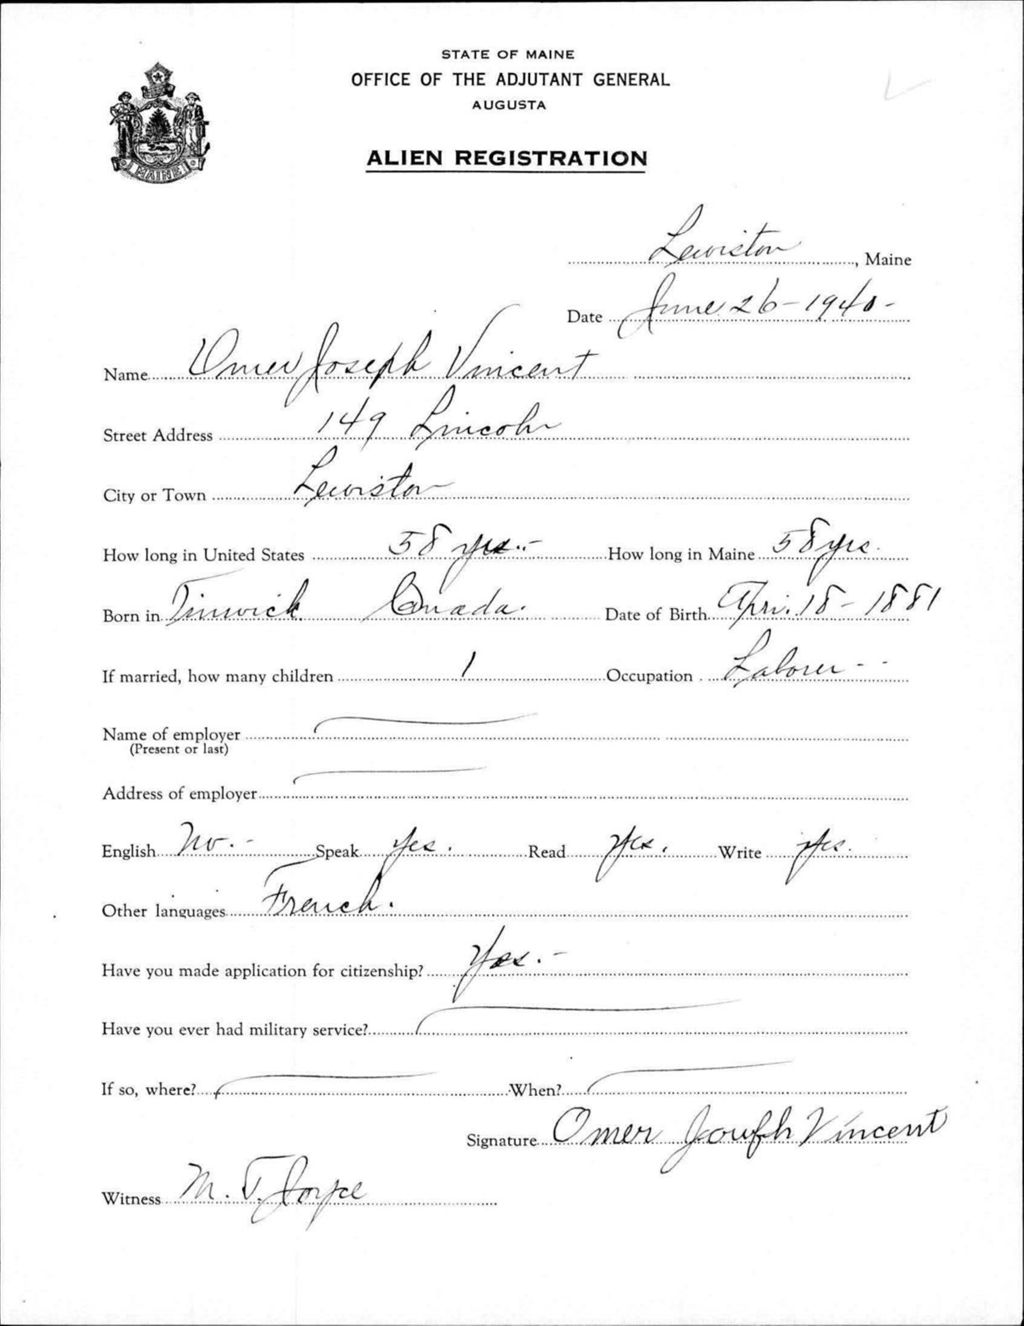 STATE OF MAINE
OFFICE OF THE ADJUTANT GENERAL
AUGUSTA
ALIEN REGISTRATION
MAINE
Lewiston, Maine
Date June 26-1940-
Name Omer Joseph Vincent
Street Address 149 Lincoln
City or Town Lewiston
How long in United States 58 yrs.- How long in Maine 58 yrs.
Born in Tinwick Canada. Date of Birth Apri. 18-1881
If married, how many children 1 Occupation Laborer--
Name of employer
(Present or last)
Address of employer
English No.- Speak Yes. Read Yes. Write Yes.
Other languages French.
Have you made application for citizenship? Yes.-
Have you ever had military service?
If so, where? When?
Signature Omer Joseph Vincent
Witness M. T. Joyce